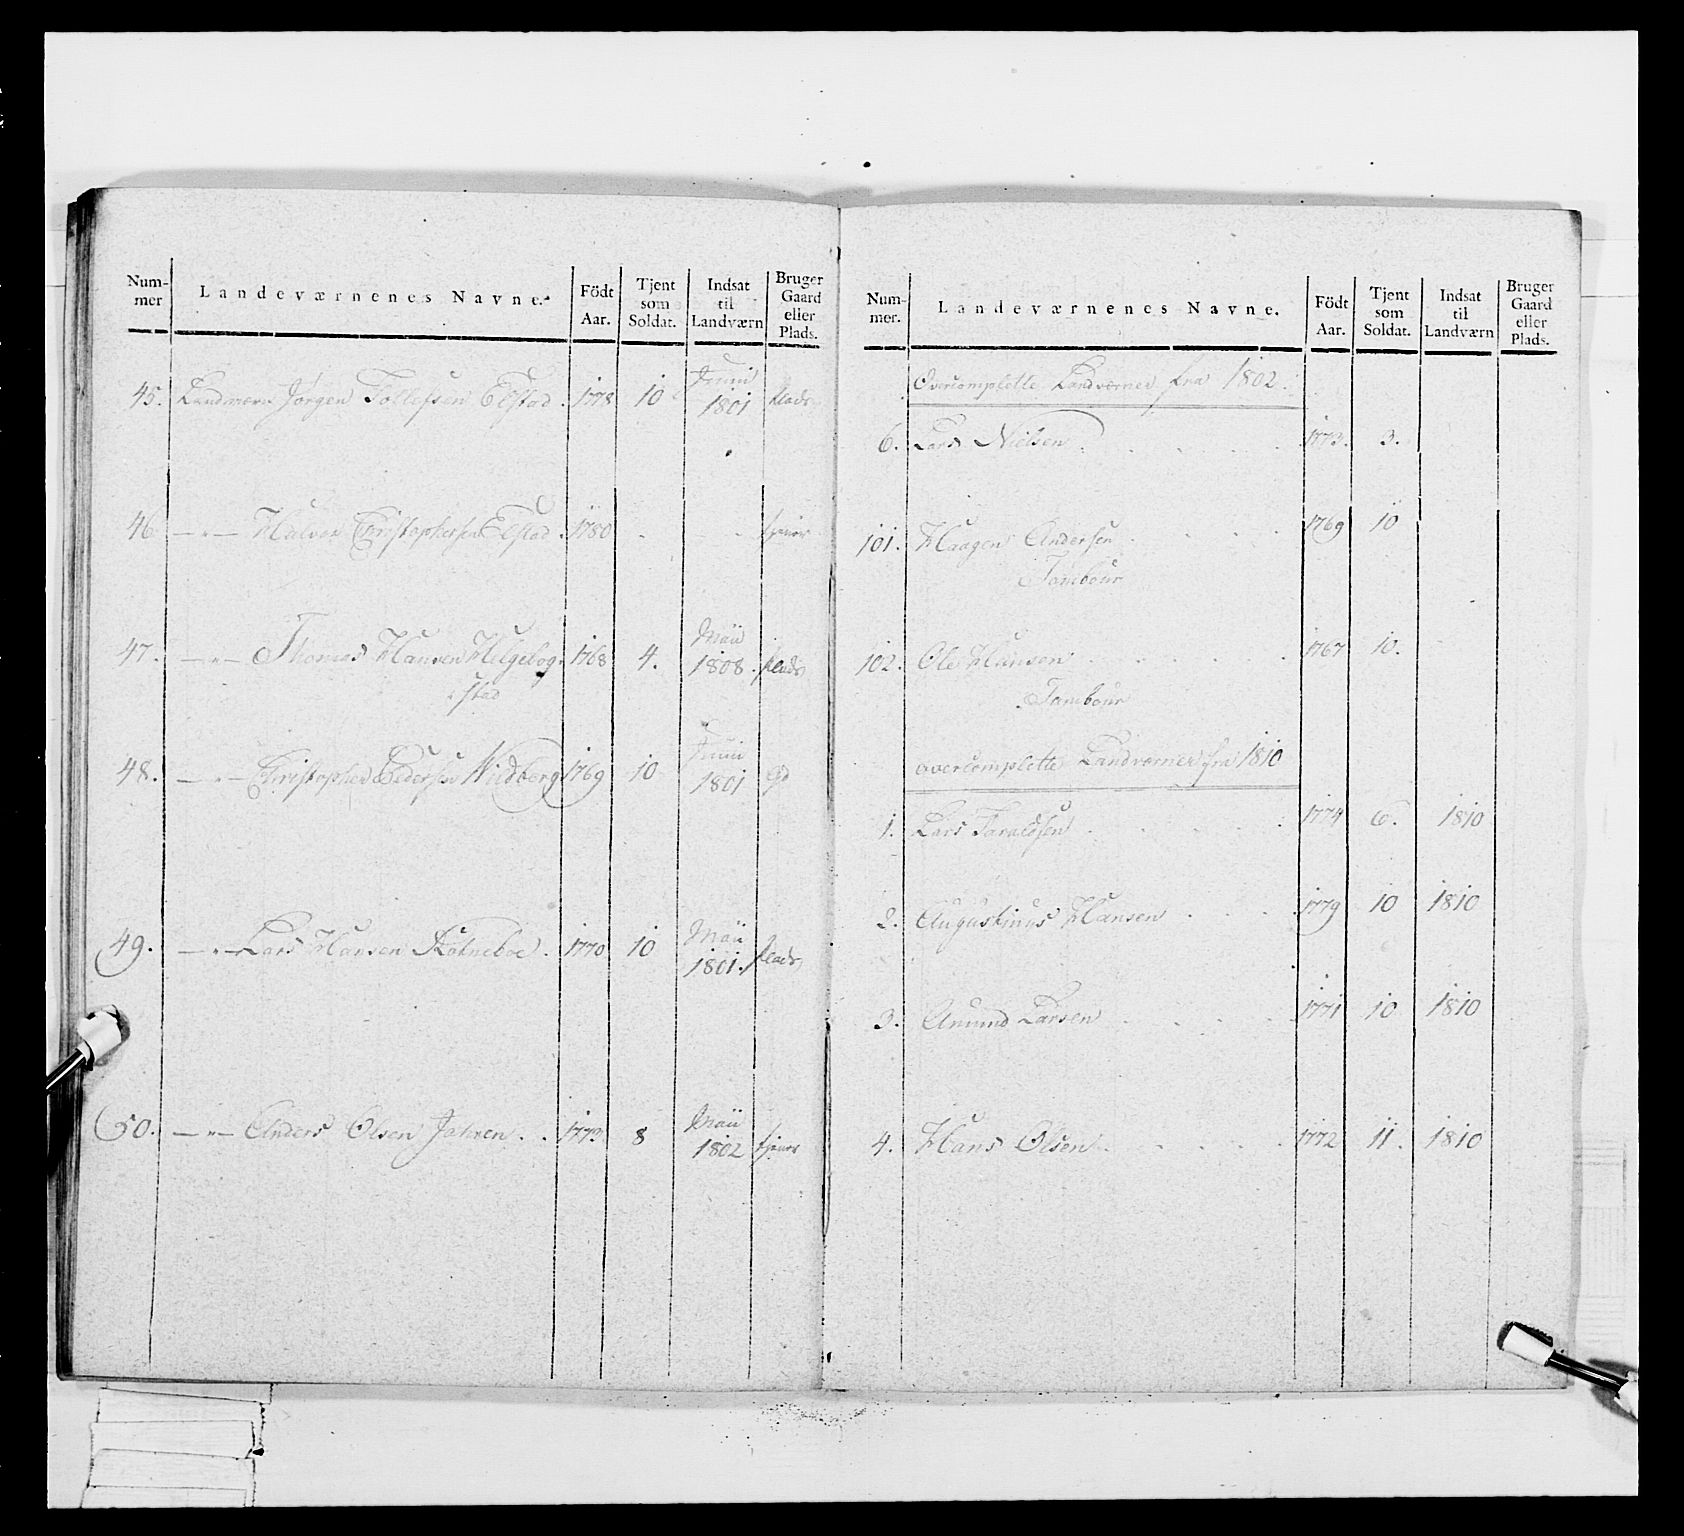 Num-
mer
Landeværnenes Navne.
Födt
Aar.
Tjent
som
Soldat.
Indsat
til
Landværn
Bruger
Gaard
eller
Plads.
45. Landværn Jørgen Tollefsen Elstad. 1778 10 Junii 1801 Plads
46 — " — Halvor Christophersen Elstad. 1780 . . tjener
47. — " — Thomas Hansen Helgebog- 1768 4. Maii 1808. Plads
stad
48. — " — Christopher Pedersen Windberg 1769 10 Junii 1801
49. — " — Lars Hansen 1770 10 Maii 1801. Plads
50. — " — Anders Olsen Jahren. . 1773 8 Maii 1802 tjener
Num-
mer.
Landeværnenes Navne.
Födt
Aar.
Tjent
som
Soldat.
Indsat
til
Landværn
Bruger
Gaard
eller
Plads.
Overcomplette Landværner fra 1802.
6. Lars Nielsen . . . . . 1773. 3.
101. Haagen Andersen . . . . 1769 10
Tambour
102. Ole Hansen . . . . . 1767 10.
Tambour
overcomplette Landværner fra 1810
1. Lars Taraldsen . . . . . 1774 6. 1810
2. Augustinus Hansen . . . 1779 10 1810
3. Amund Larsen . . . . 1771 10 1810
4. Hans Olsen . . . . . 1772 11. 1810